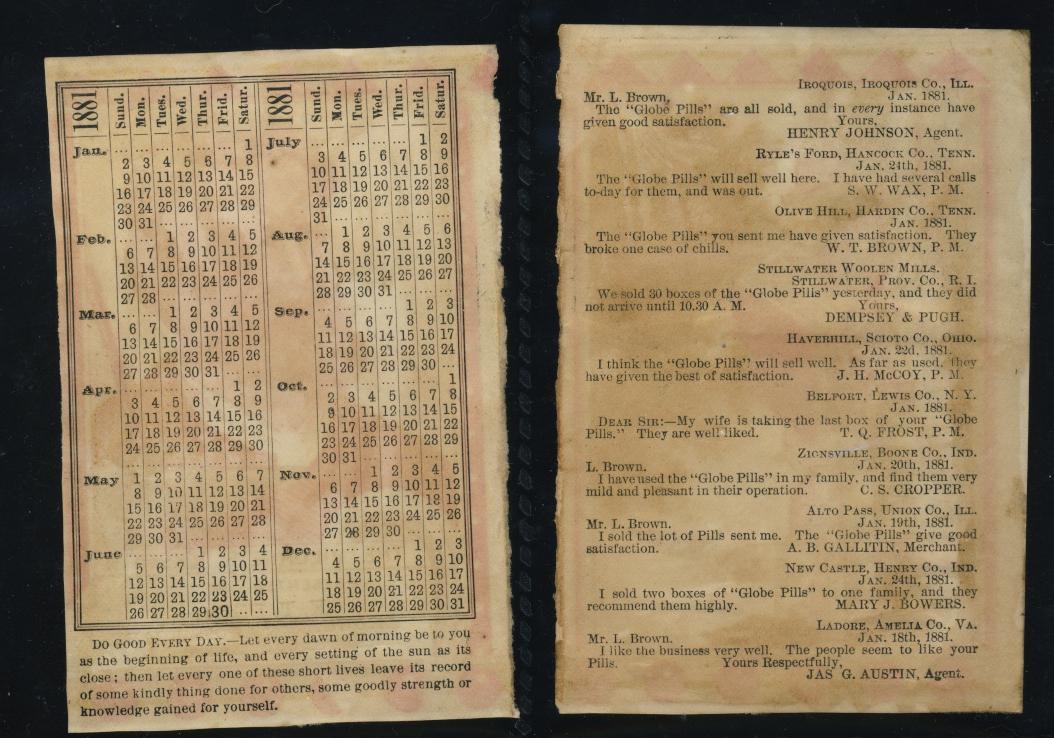 1881 Sund. Mon. Tues. Wed. Thur. Frid. Satur.
Jan. ... ... ... ... ... ... 1
2 3 4 5 6 7 8
9 10 11 12 13 14 15
16 17 18 19 20 21 22
23 24 25 26 27 28 29
30 31 ... ... ... ... ...
Feb. ... ... 1 2 3 4 5
6 7 8 9 10 11 12
13 14 15 16 17 18 19
20 21 22 23 24 25 26
27 28 ... ... ... ... ...
Mar. ... ... 1 2 3 4 5
6 7 8 9 10 11 12
13 14 15 16 17 18 19
20 21 22 23 24 25 26
27 28 29 30 31 ... ...
Apr. ... ... ... ... ... 1 2
3 4 5 6 7 8 9
10 11 12 13 14 15 16
17 18 19 20 21 22 23
24 25 26 27 28 29 30
... ... ... ... ... ... ...
May 1 2 3 4 5 6 7
8 9 10 11 12 13 14
15 16 17 18 19 20 21
22 23 24 25 26 27 28
29 30 31 ... ... ... ...
June ... ... ... 1 2 3 4
5 6 7 8 9 10 11
12 13 14 15 16 17 18
19 20 21 22 23 24 25
26 27 28 29 30 ... ...
1881 Sund. Mon. Tues. Wed. Thur. Frid. Satur.
July ... ... ... ... ... 1 2
3 4 5 6 7 8 9
10 11 12 13 14 15 16
17 18 19 20 21 22 23
24 25 26 27 28 29 30
31 ... ... ... ... ... ...
Aug. ... 1 2 3 4 5 6
7 8 9 10 11 12 13
14 15 16 17 18 19 20
21 22 23 24 25 26 27
28 29 30 31 ... ... ...
Sep. ... ... ... ... 1 2 3
4 5 6 7 8 9 10
11 12 13 14 15 16 17
18 19 20 21 22 23 24
25 26 27 28 29 30 ...
Oct. ... ... ... ... ... ... 1
2 3 4 5 6 7 8
9 10 11 12 13 14 15
16 17 18 19 20 21 22
23 24 25 26 27 28 29
30 31 ... ... ... ... ...
Nov. ... ... 1 2 3 4 5
6 7 8 9 10 11 12
13 14 15 16 17 18 19
20 21 22 23 24 25 26
27 28 29 30 ... ... ...
Dec. ... ... ... ... 1 2 3
4 5 6 7 8 9 10
11 12 13 14 15 16 17
18 19 20 21 22 23 24
25 26 27 28 29 30 31
DO GOOD EVERY DAY.—Let every dawn of morning be to you
as the beginning of life, and every setting of the sun as its
close; then let every one of these short lives leave its record
of some kindly thing done for others, some goodly strength or
knowledge gained for yourself.
IROQUOIS, IROQUOIS CO., ILL.
Mr. L. Brown, JAN. 1881.
The "Globe Pills" are all sold, and in every instance have
given good satisfaction. Yours,
HENRY JOHNSON, Agent.
RYLE'S FORD, HANCOCK CO., TENN.
JAN. 24th, 1881.
The "Globe Pills" will sell well here. I have had several calls
to-day for them, and was out. S. W. WAX, P. M.
OLIVE HILL, HARDIN CO., TENN.
JAN. 1881.
The "Globe Pills" you sent me have given satisfaction. They
broke one case of chills. W. T. BROWN, P. M.
STILLWATER WOOLEN MILLS.
STILLWATER, PROV. CO., R. I.
We sold 30 boxes of the "Globe Pills" yesterday, and they did
not arrive until 10.30 A. M. Yours,
DEMPSEY & PUGH.
HAVERHILL, SCIOTO CO., OHIO.
JAN. 22d, 1881.
I think the "Globe Pills" will sell well. As far as used, they
have given the best of satisfaction. J. H. McCOY, P. M.
BELFORT, LEWIS CO., N. Y.
JAN. 1881.
DEAR SIR:—My wife is taking the last box of your "Globe
Pills." They are well liked. T. Q. FROST, P. M.
ZIONSVILLE, BOONE CO., IND.
L. Brown. JAN. 20th, 1881.
I have used the "Globe Pills" in my family, and find them very
mild and pleasant in their operation. C. S. CROPPER.
ALTO PASS, UNION CO., ILL.
Mr. L. Brown. JAN. 19th, 1881.
I sold the lot of Pills sent me. The "Globe Pills" give good
satisfaction. A. B. GALLITIN, Merchant.
NEW CASTLE, HENRY CO., IND.
JAN. 24th, 1881.
I sold two boxes of "Globe Pills" to one family, and they
recommend them highly. MARY J. BOWERS.
LADORE, AMELIA CO., VA.
Mr. L. Brown. JAN. 18th, 1881.
I like the business very well. The people seem to like your
Pills. Yours Respectfully,
JAS G. AUSTIN, Agent.